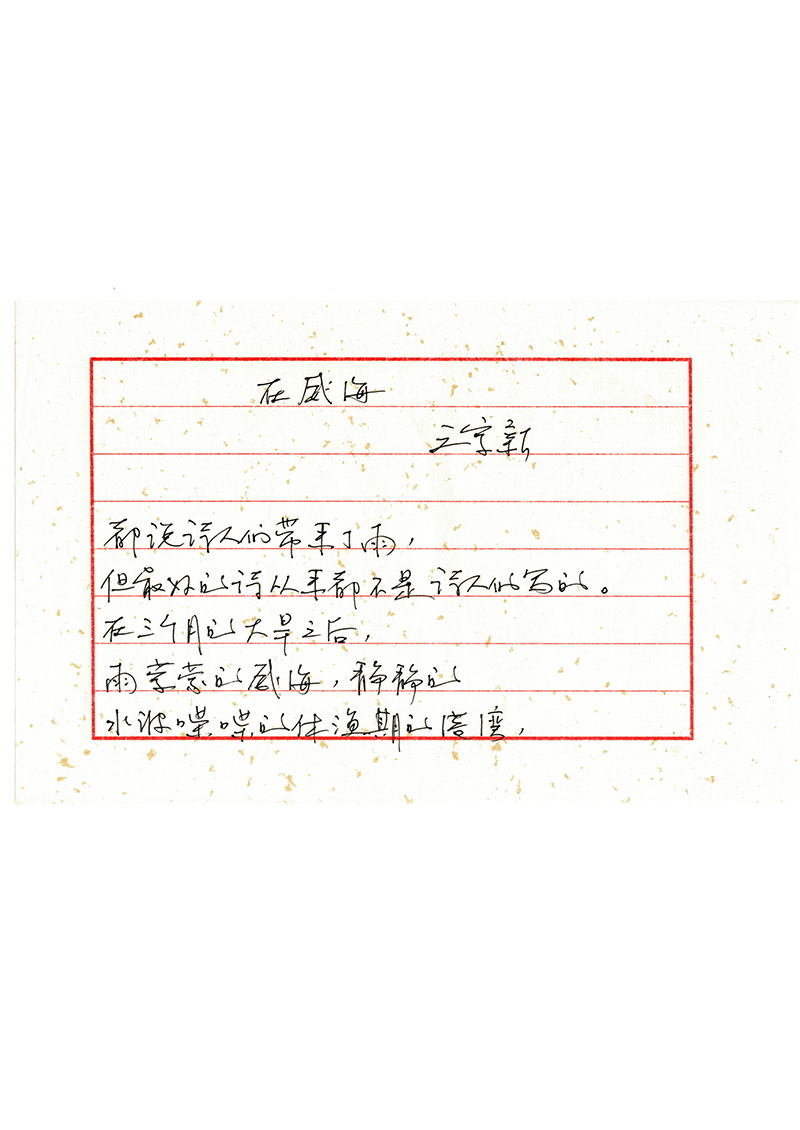 在威海
王学新
都说诗人们带来了雨，
但最好的诗从来都不是诗人们写的。
在三个月的大旱之后，
雨蒙蒙的威海，静静的
水波喋喋的休渔期的港湾，